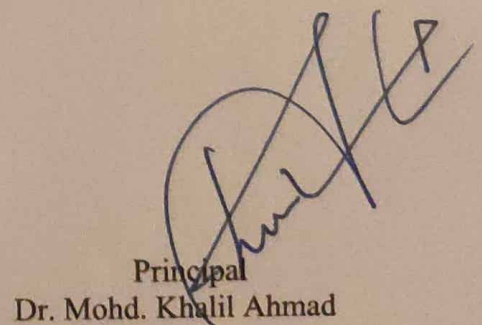 Principal
Dr. Mohd. Khalil Ahmad